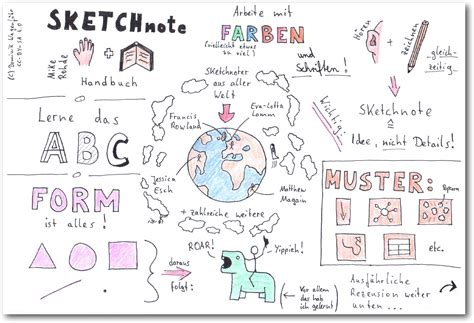 SKETCHnote
Mike
Rohde
Handbuch
Lerne das
ABC
FORM
ist alles!
Arbeite mit
FARBEN
(vielleicht etwas
zu viel)
und
Schriften!
Sketchnoter
aus aller
Welt
Francis
Rowland
Eva-Lotta
Lamm
Jessica
Esch
Matthew
Magain
+ zahlreiche weitere
daraus
folgt:
ROAR!
Yippieh!
(Vor allem
das hab
ich gelernt)
Hören
+
zeichnen
gleich-
zeitig.
Wichtig:
Sketchnote
=
Idee, nicht Details!
MUSTER:
Popcorn
etc.
Ausführliche
Rezension weiter
unten ...